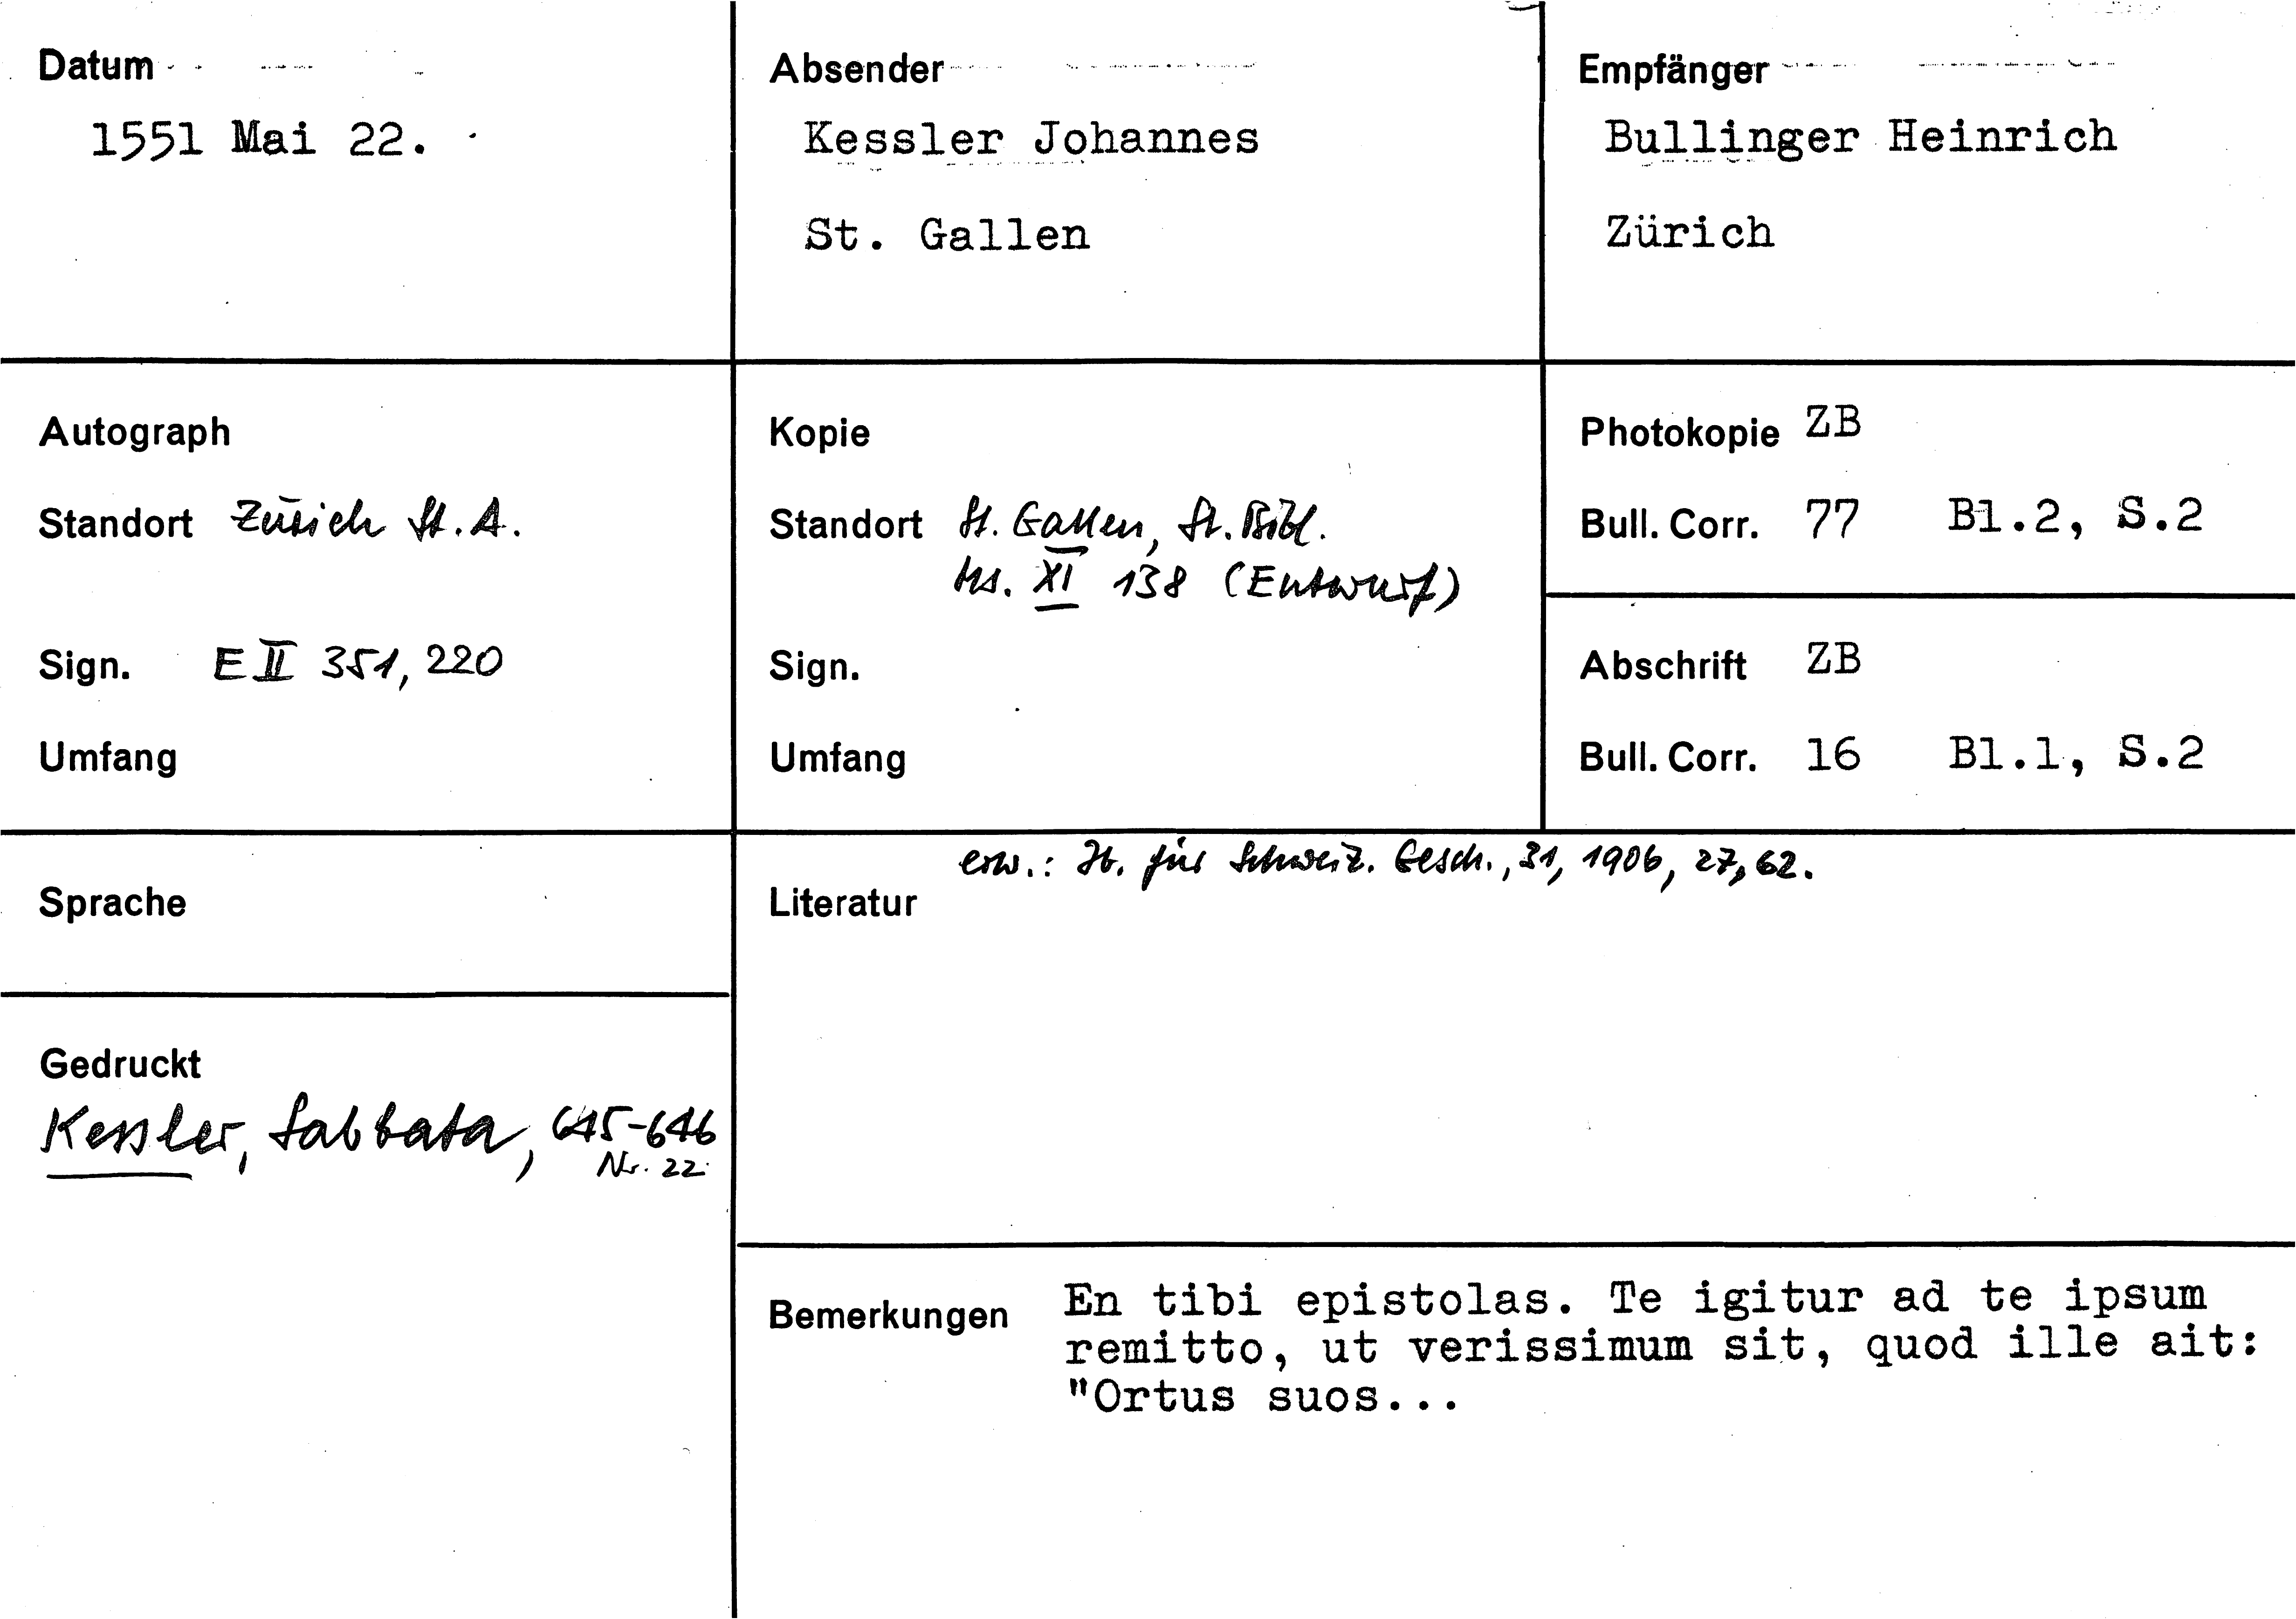 Datum
1551 Mai 22.
Absender
Kessler Johannes
St. Gallen
Empfänger
Bullinger Heinrich
Zürich
Autograph
Standort Zürich St. A.
Sign. E II 351, 220
Umfang
Kopie
Standort St. Gallen, St. Bibl.
Ms. XI 138 (Entwurf)
Sign.
Umfang
Photokopie ZB
Bull. Corr. 77 Bl.2, S.2
Abschrift ZB
Bull. Corr. 16 Bl.1, S.2
Sprache
Gedruckt
Kessler, Sabbata, 645-646
Nr. 22
erw.: Jb. für Schweiz. Gesch., 31, 1906, 27, 62.
Literatur
Bemerkungen En tibi epistolas. Te igitur ad te ipsum
remitto, ut verissimum sit, quod ille ait:
"Ortus suos...